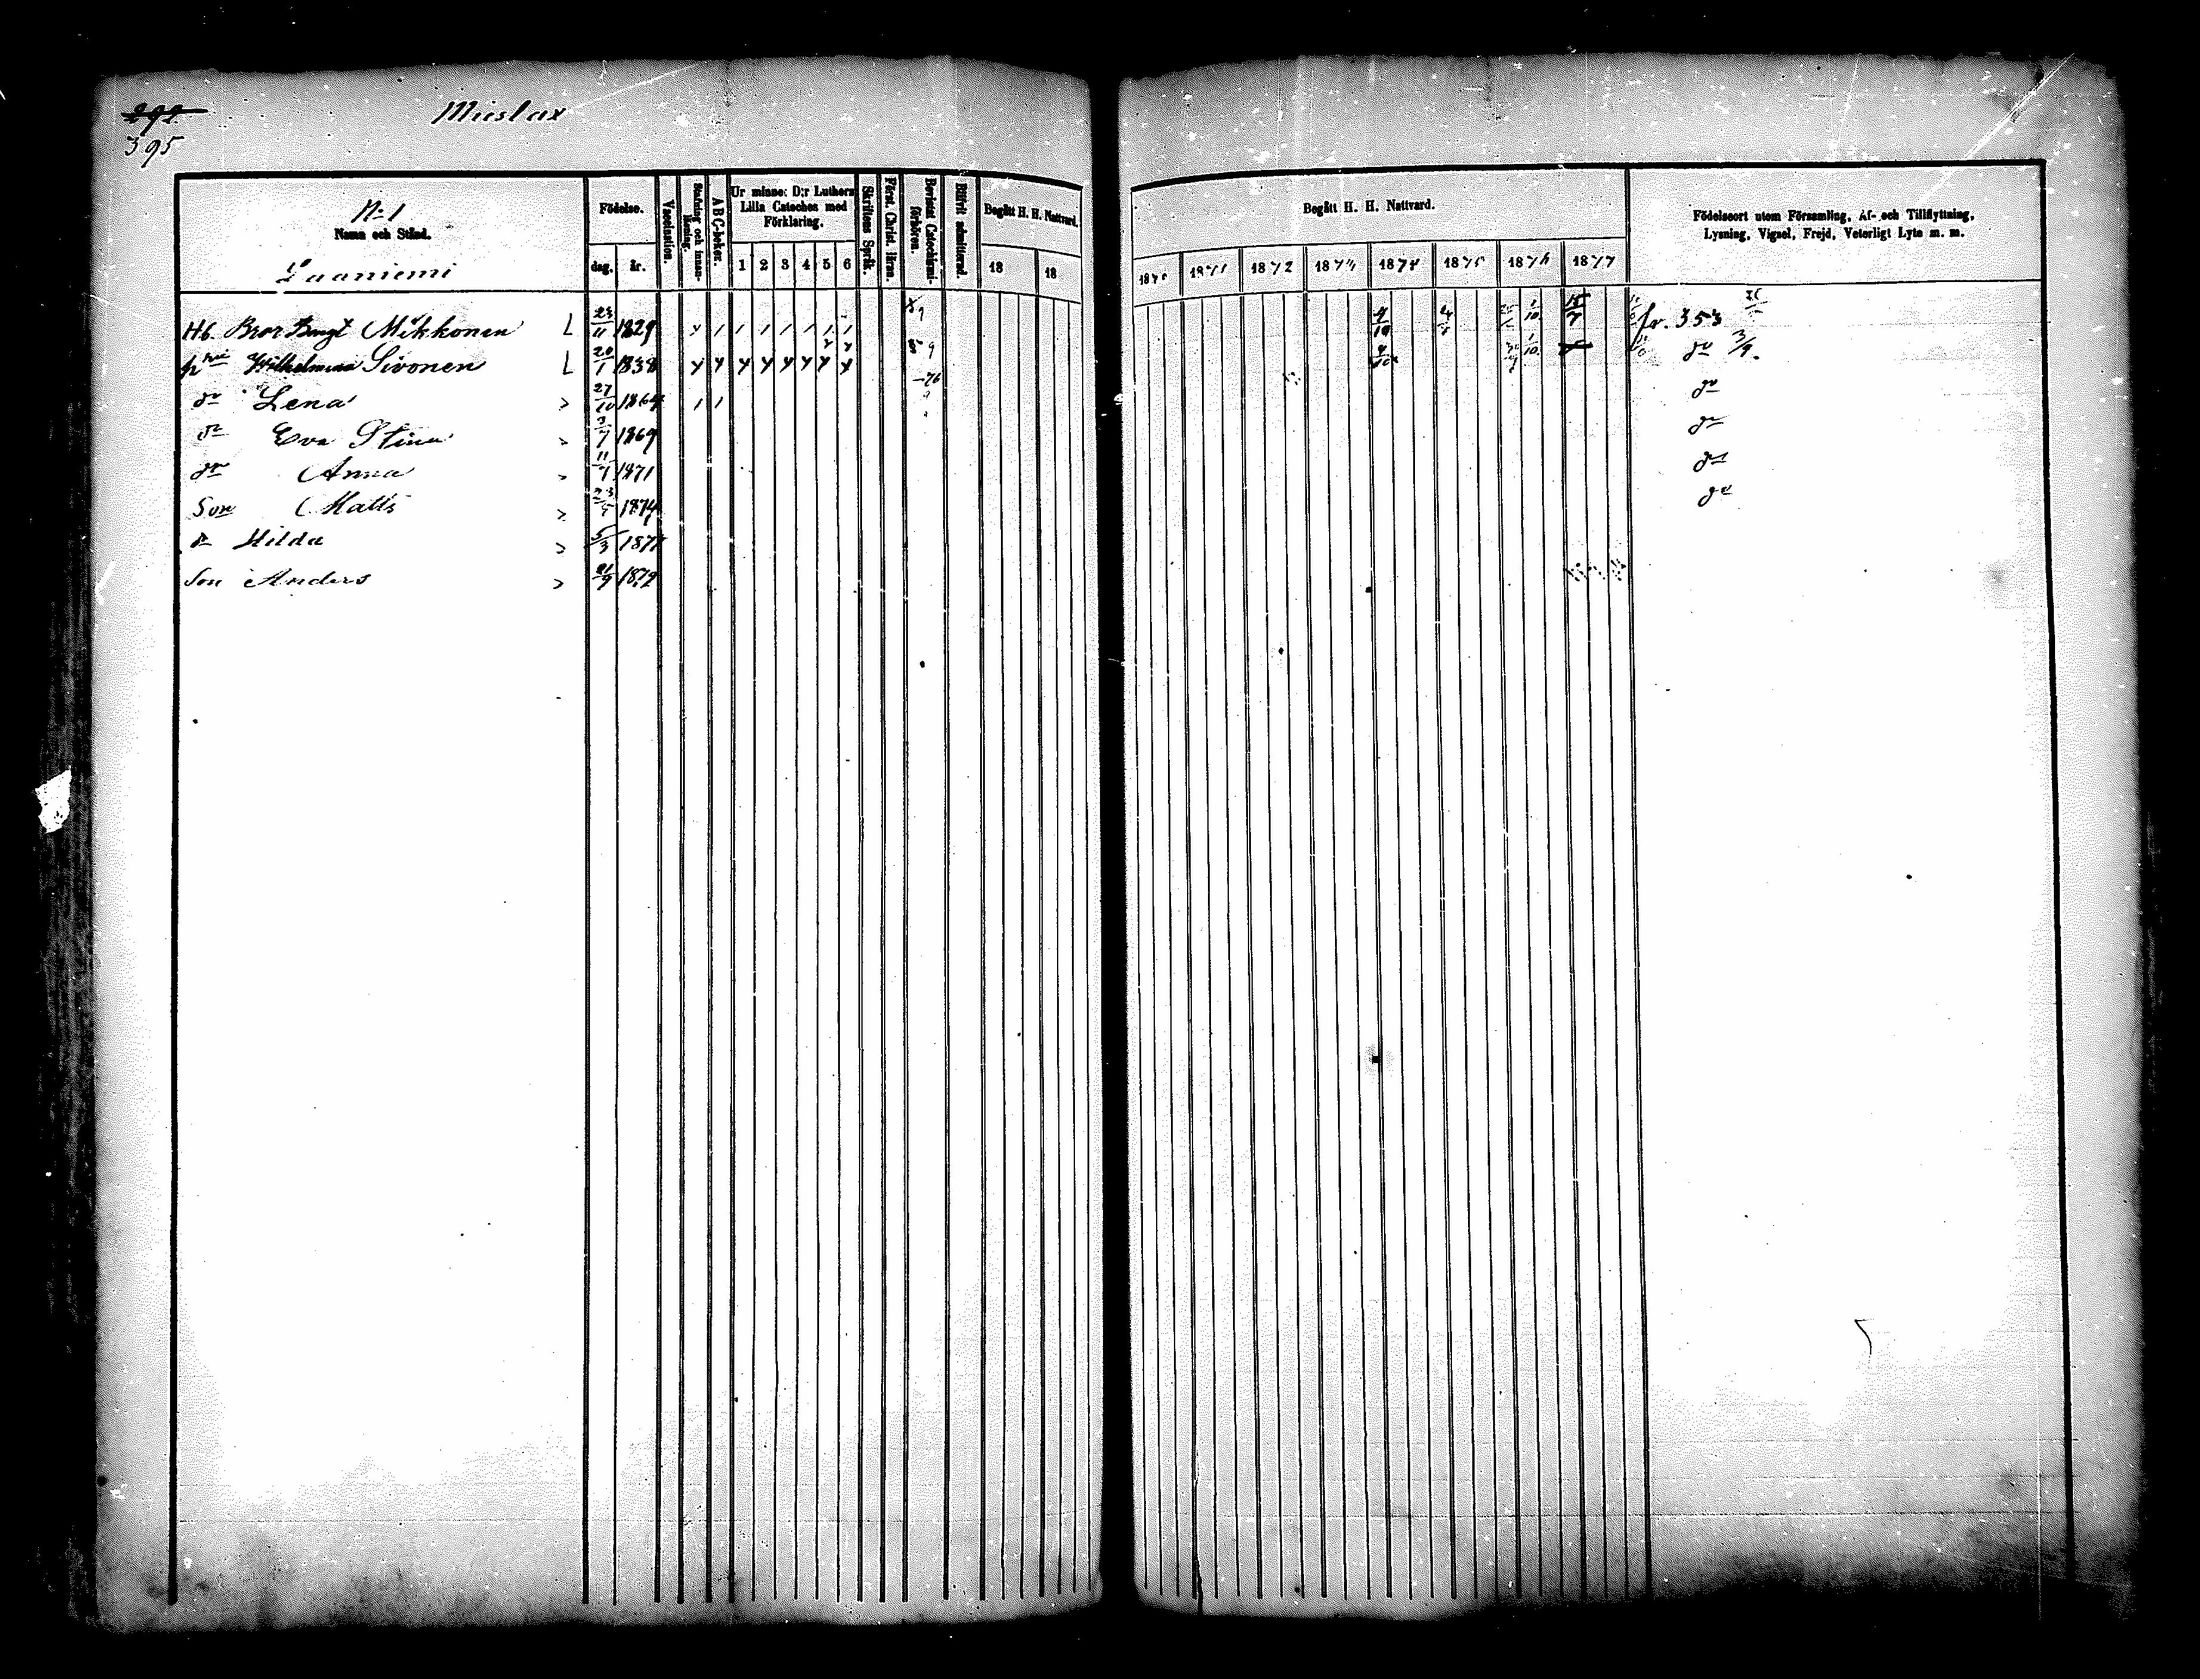 292
395
Muslax
N:o 1
Namn och Stånd.
Laaniemi
Födelse.
dag. år.
Vaccination.
Stafning och innan-läsning.
A B C-boken.
Ur minne: D:r Luthers Lilla Cateches med Förklaring.
1 2 3 4 5 6
Skriftens Språk.
Förstr. Christ. läran.
Bevistat Catechismi-förhören.
Blifvit admitterad.
Begått H. H. Nattvard.
18 18
Begått H. H. Nattvard.
1870 1871 1872 1873 1874 1875 1876 1877
Födelseort utom Församling, Af- och Tillflyttning, Lysning, Vigsel, Frejd, Veterligt Lyte m. m.
Hb. Bror Bengt Mikkonen L 23/11 1829 4/10 1/10 15/7 fr. 353
h:n Wilhelmina Sivonen L 20/1 1838 4/10 1/10 d:o 3/9.
dr Lena > 27/10 1864 -76 d:o
dr Eva Stina > 1869 d:o
dr Anna > 11/7 1871 d:o
Son Matts > 23 1874 d:o
dr Hilda > 5/3 1877
Son Anders > 21/9 1879